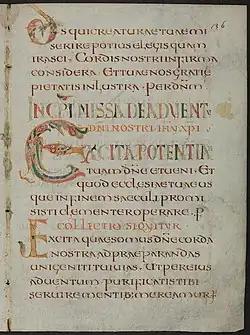 136
DS quicreaturaetuaemi
sereripotiuselegisquam
irasci. Cordisnostriinfirma
considera. Ettuaenosgratiae
pietatisinlustra. Perdnm
INCPT MISSA DE ADVENT
DNI NOSTRI IHU XPI
EXCITA POTENTIA
tuamdne etueni. Et
quod ecclesiaetuaeus
que infinem saeculi promi
sisti clementer operare. P
COLLECTIO SEQUITUR
Excita quaesomus dne corda
nostra ad praeparandas
unigeniti tui uias. Ut per eius
aduentum purificatis tibi
seruire mentib: mereamur P